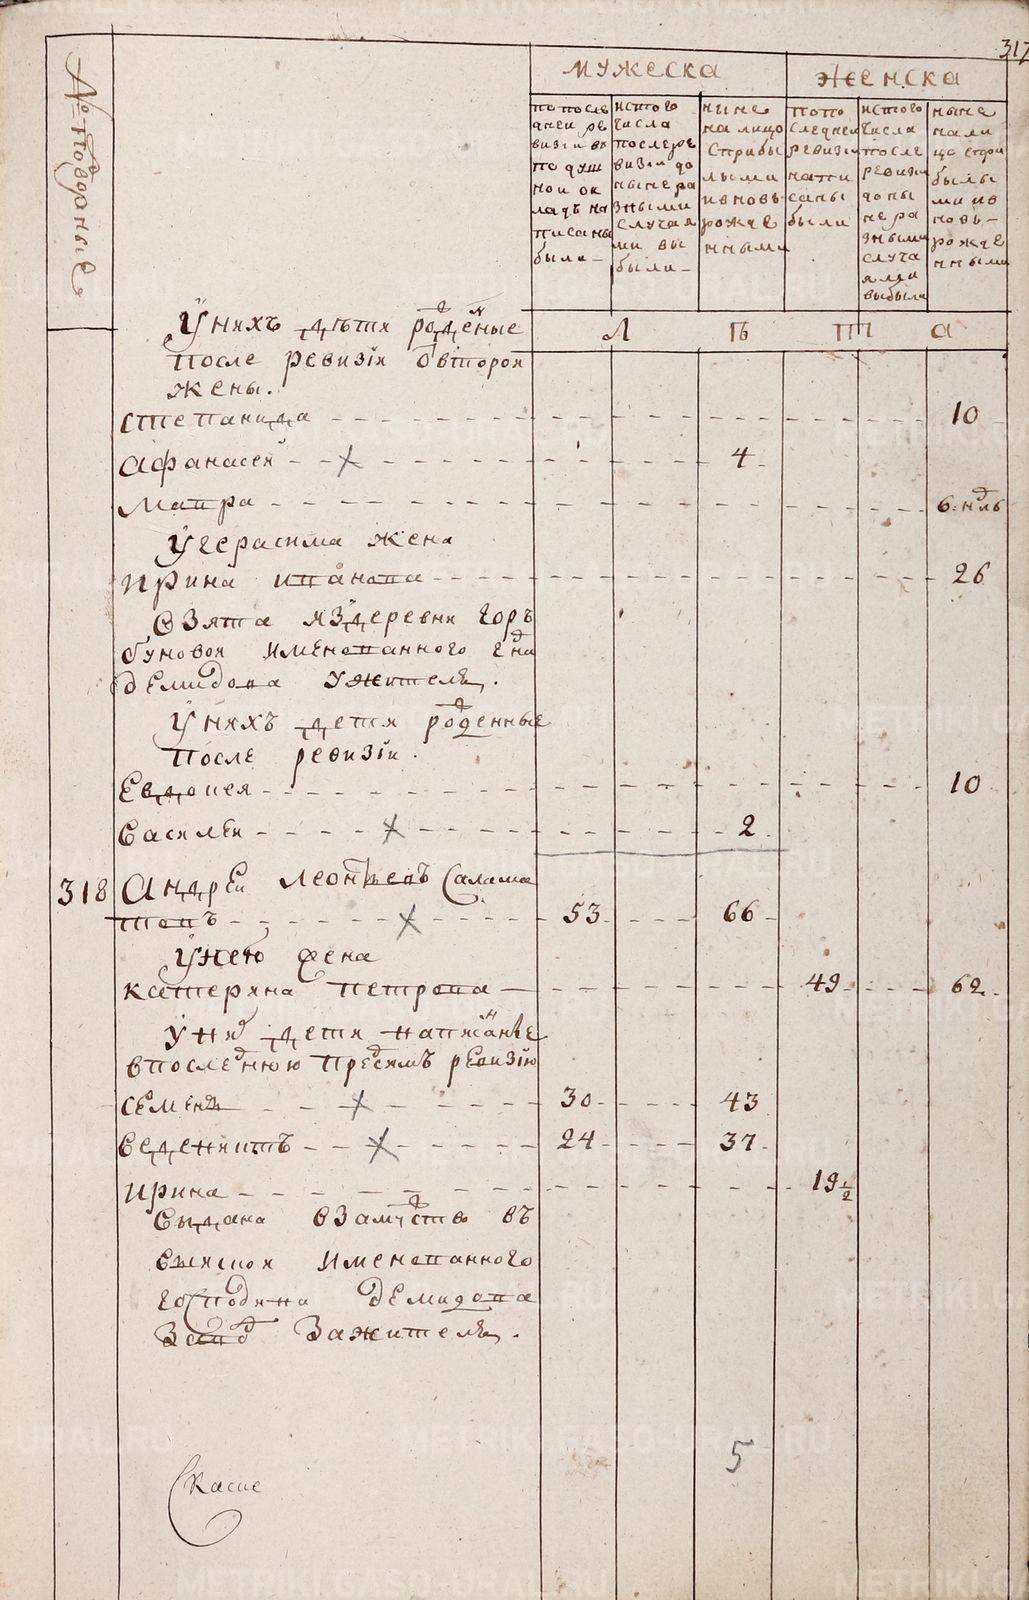 317
№ подворные
мужеска
женска
по после
дней ре
визiи въ
подуш
ной ок
ладъ на
писаны
были
истого
числа
после ре
визiи до
ныне ра
зными
случая
ми вы
были
ныне
налицо
сприбы
лыми
ивновь
рожде
нными
попо
следней
ревизiи
напи
саны
были
истого
числа
после
ревизiи
доны
не ра
зными
случа
ями
выбыли
ныне
нали
цо спри
былы
ми ив
новь
рожде
нными
У нихъ дѣти роденые
после ревизiи Овторой
жены.
Л ѣ т а
степанида 10
афанасей 4
мавра 6: ндль
У герасима жена
ирина иванова 26
взята издеревни горъ
буновой именованного гдна
демидова ужителя.
У нихъ дети роденные
после ревизiи.
Евдокея 10
василеи 2
318 Андрей леонтьевъ Салама
товъ 53 66
Унего жена
катерина петрова 49 62
У ни дети написанные
впоследнюю предсимъ ревизiю
семенъ 30 43
веденихтъ 24 37
ирина 19 1/2
выдана взамуство въ
выиской именованного
господина демидова
завод зажителя.
5
Скаске